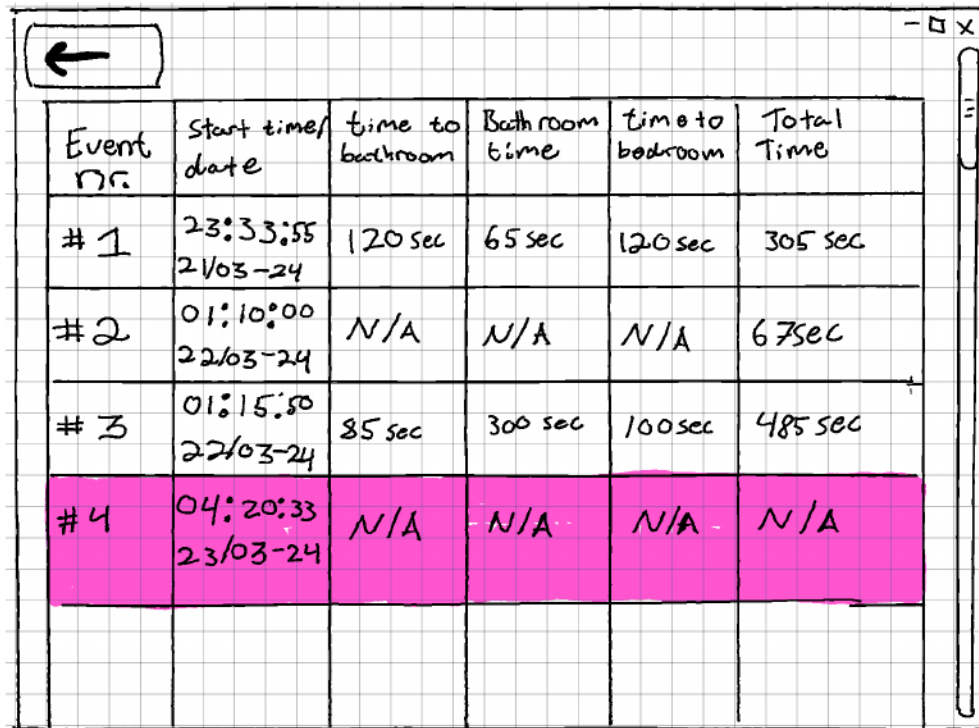 Event nr.
Start time/ date
time to bathroom
Bathroom time
time to bedroom
Total Time
#1
23:33:55
21/03-24
120 sec
65 sec
120 sec
305 sec
#2
01:10:00
22/03-24
N/A
N/A
N/A
67sec
#3
01:15:50
22/03-24
85 sec
300 sec
100 sec
485 sec
#4
04:20:33
23/03-24
N/A
N/A
N/A
N/A